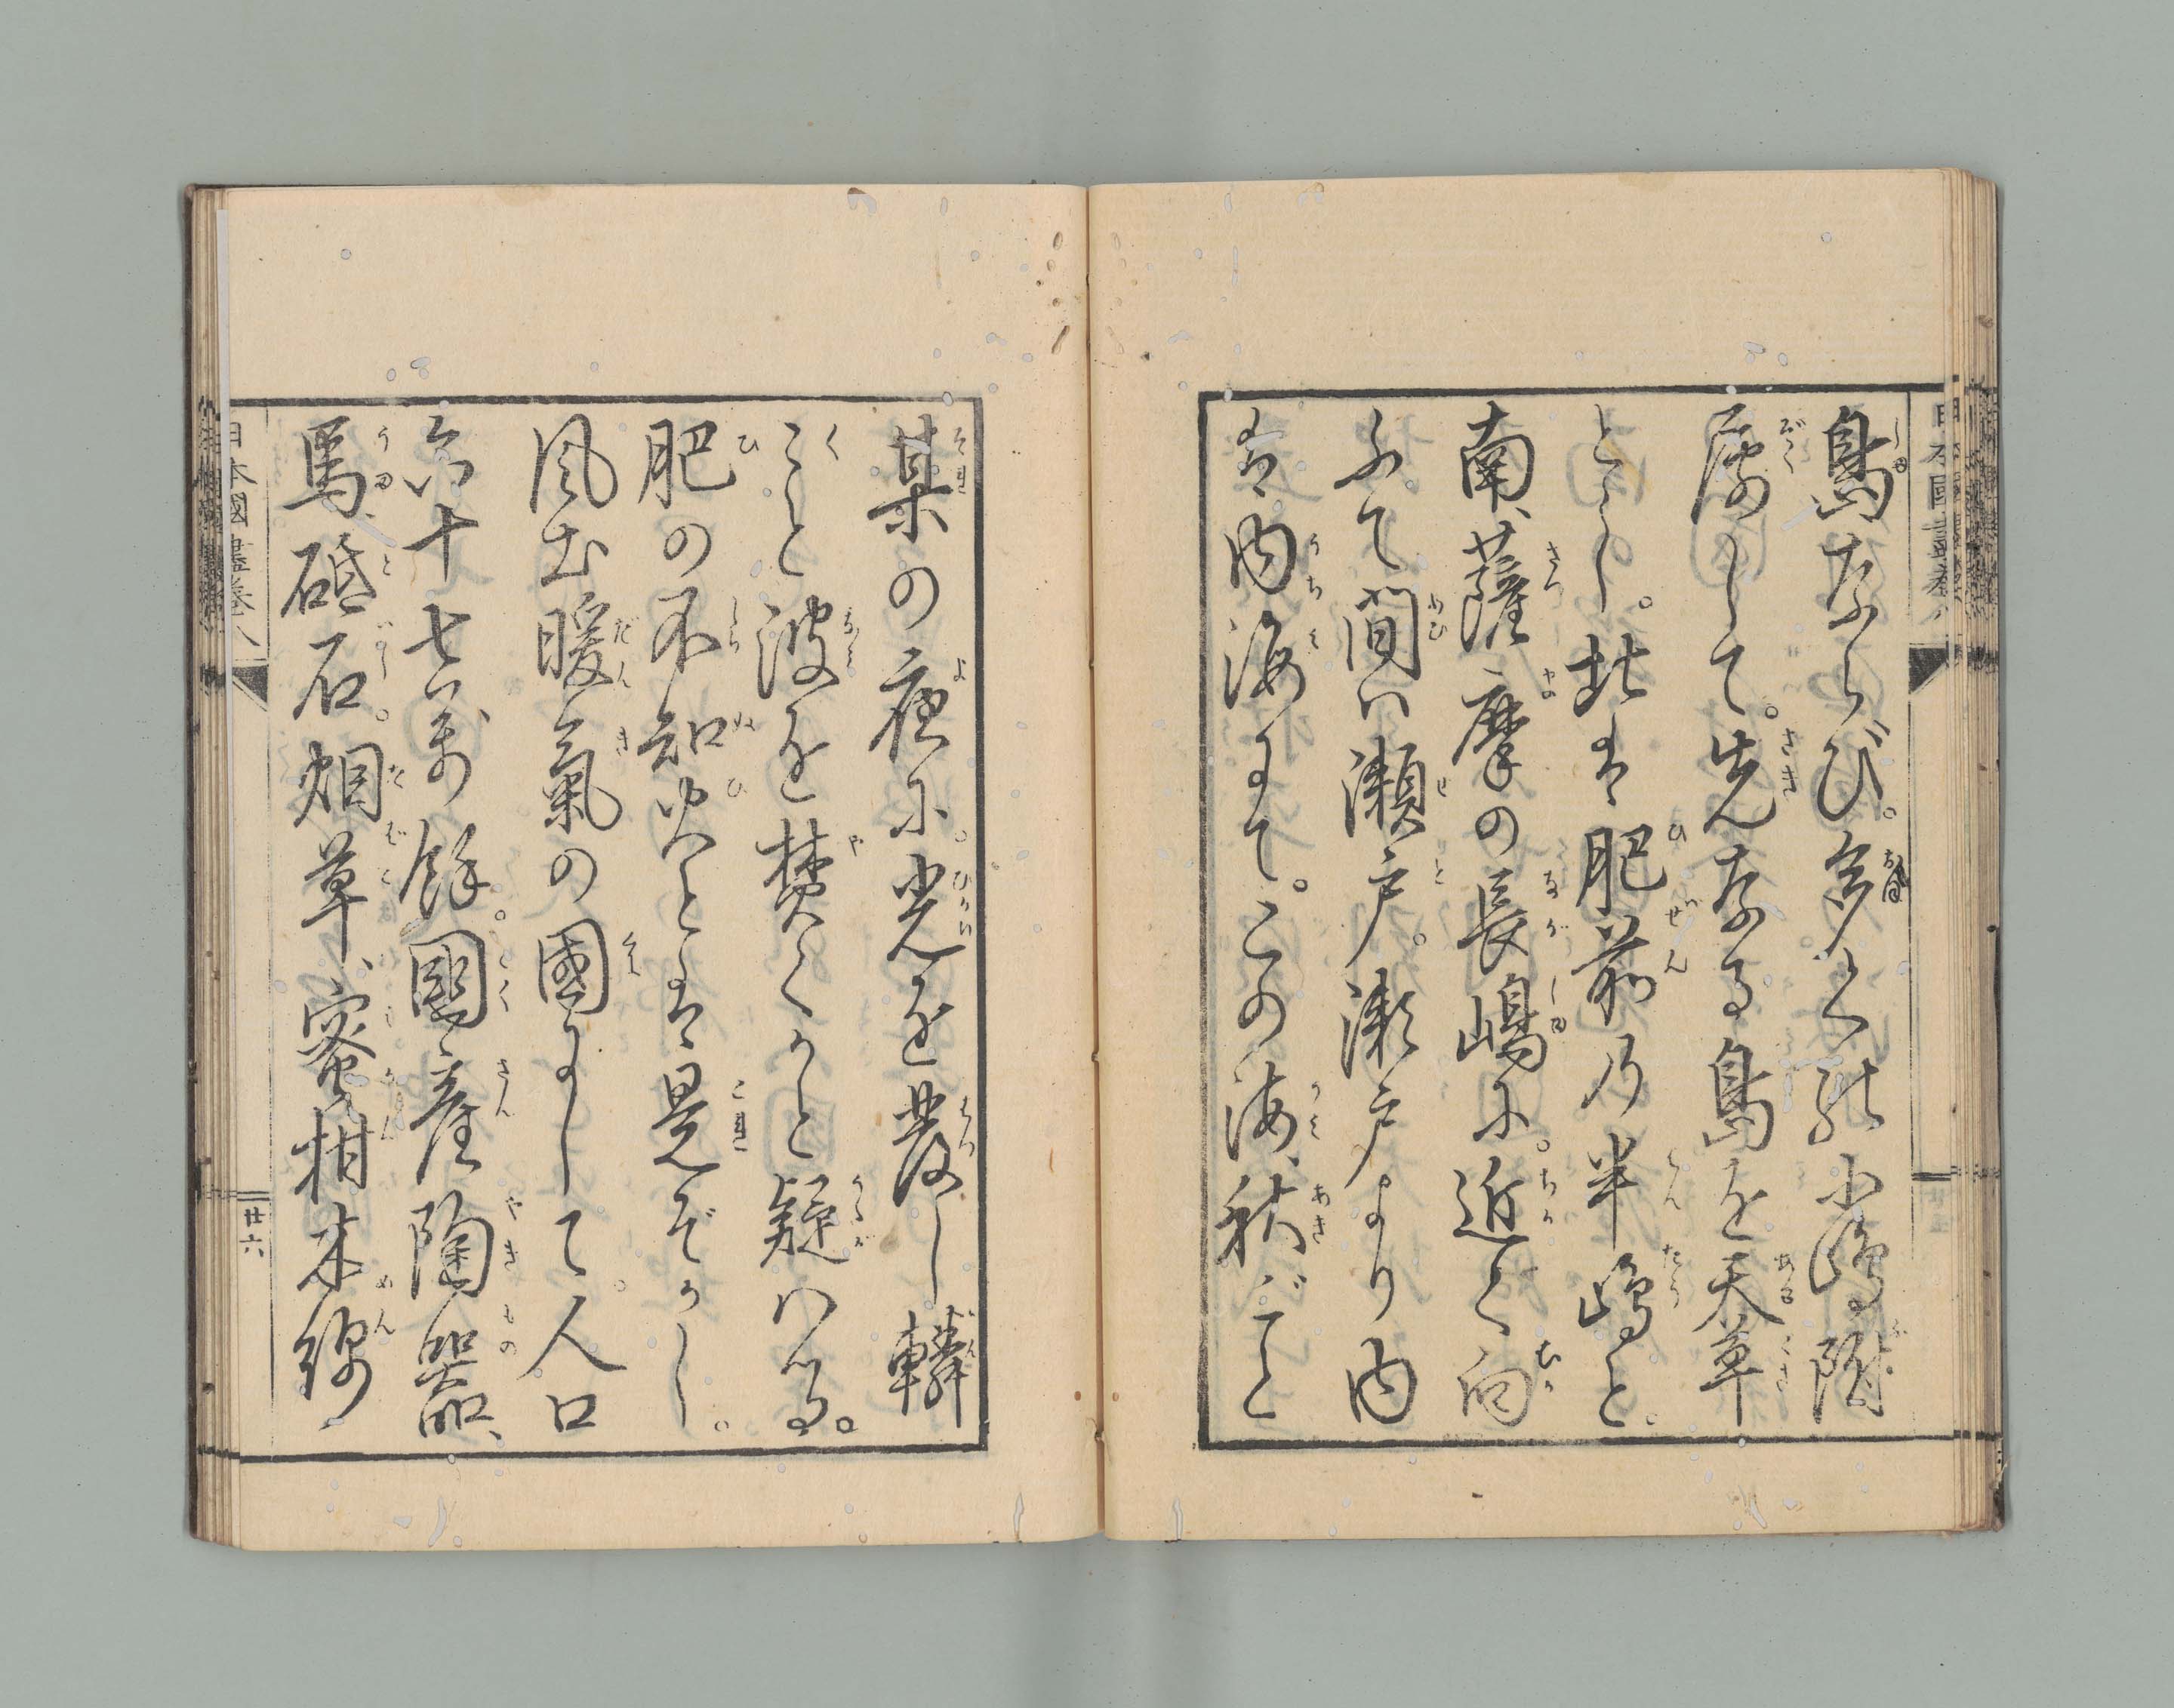 島ならび。多くの小嶋附
属して。先なる島を天草
とくし。北は肥前乃半嶋と。
南、薩摩の長嶋に。近く向
ふて間ハ瀬戸。瀬戸より内
は内海にて。この海、秋ごと
某の夜に。光を發し轔
〻と波を焚くかと疑ハる。
肥の不知火とは是ぞかし。
風土暖氣の國にして。人口
六十七萬餘。國産陶器、
馬、砥石。烟草、蜜柑木綿
日本國盡卷八
廿六